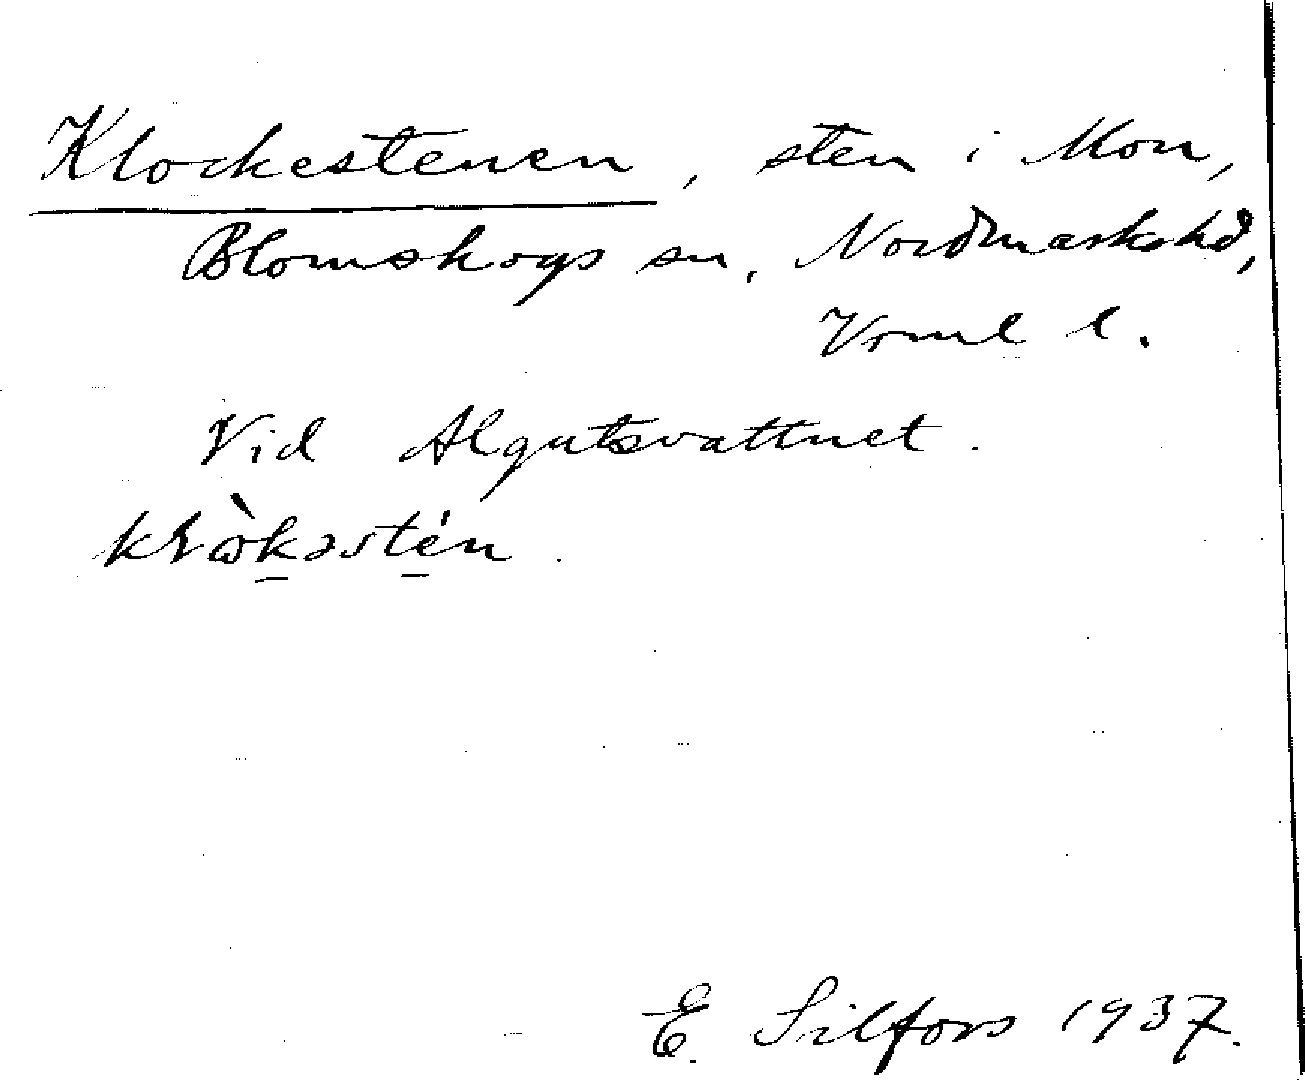 Klockestenen, sten i Mon,
Blomskogs sn, Nordmarks hd,
Vrml l.
Vid Algutsvattnet.
E. Silfors 1937.